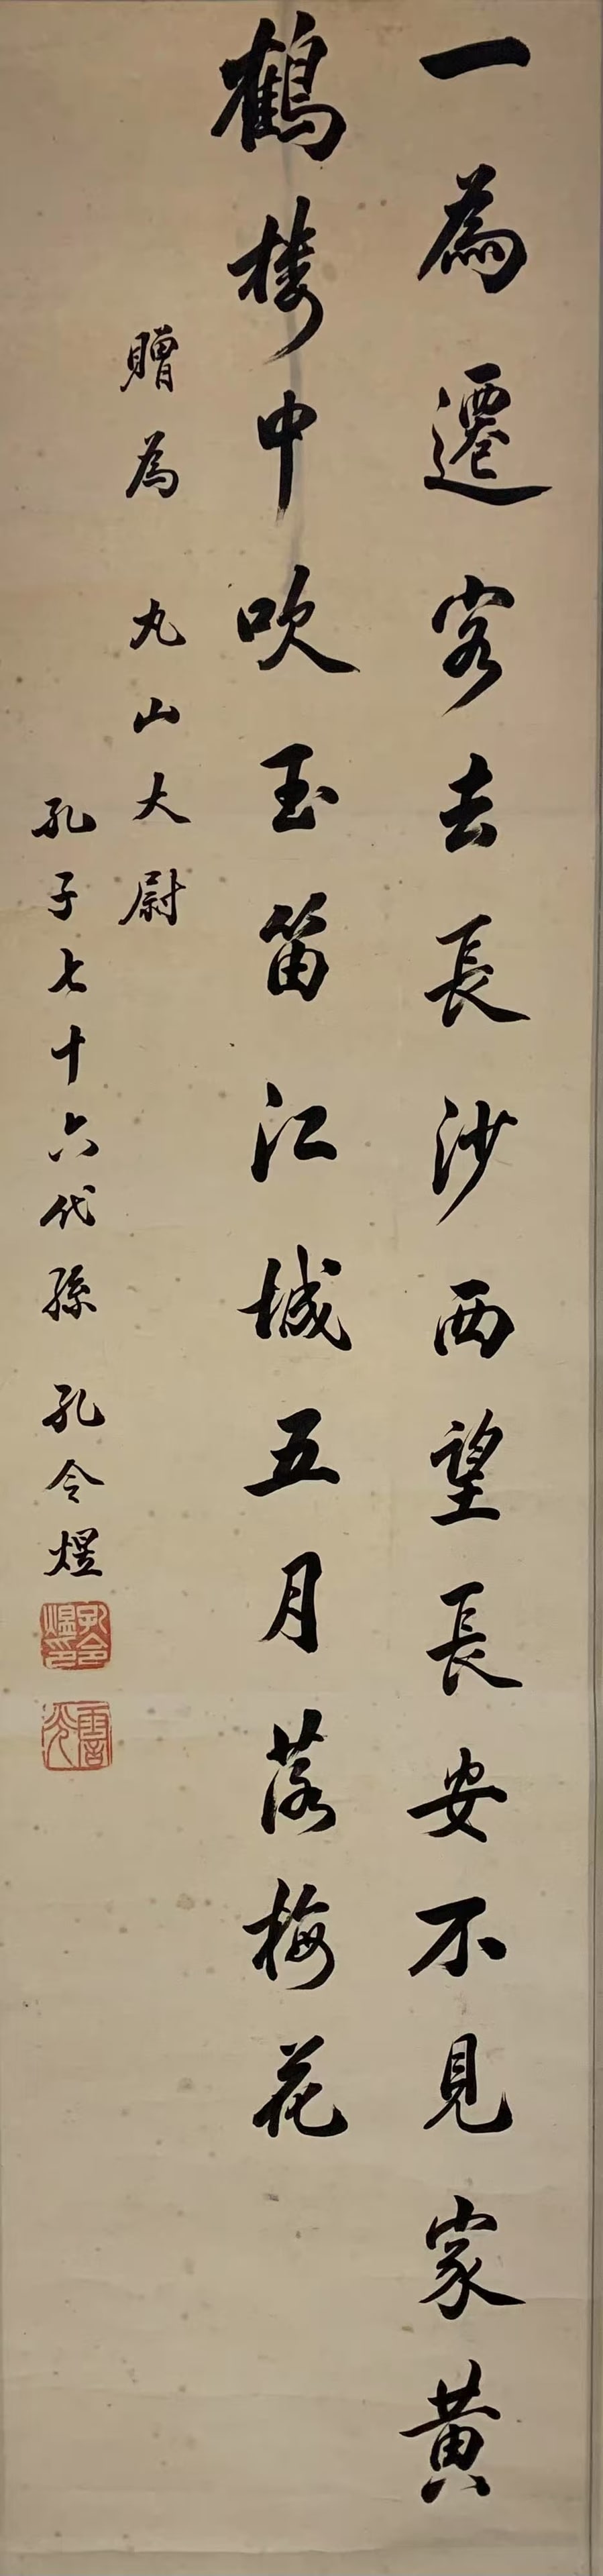 一為遷客去長沙西望長安不見家黄
鶴楼中吹玉笛江城五月落梅花
贈為 丸山大尉
孔子七十六代孫 孔令煜
孔令煜印